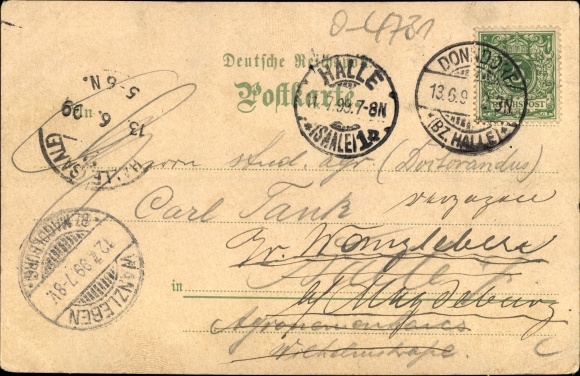 0-4731
Deutsche Reichspost
Postkarte
An
HALLE
11.7.99.7-8N
(SAALE) 1*a
DONNDORF
13.6.9
N
(BZ. HALLE)
REICHSPOST
5-6 N.
13 6 99
HALLE (SAALE)
Herrn stud. agr. (Doctorandus)
Carl Tank verzogen
Gr. Wanzleben
Halle
in b/ Magdeburg
Wilhelmstraße.
WANZLEBEN
12.7.99.7-8V.
BZ. MAGDEBURG